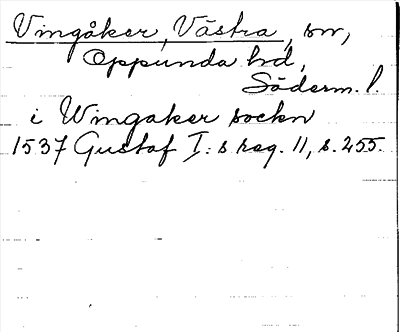 Vingåker, Västra, sn,
Oppunda hd,
Söderm. l.
i Wingaker sockn
1537 Gustaf I:s reg. 11, s. 255.